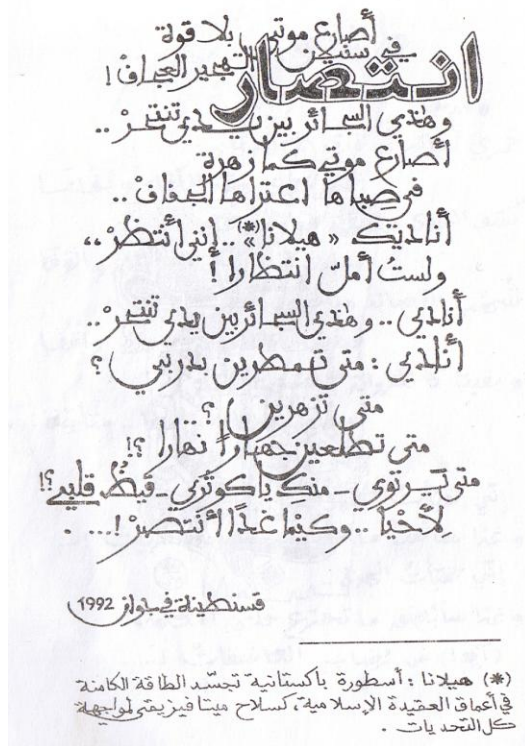 انتصار
أصارع موتي بلا قوة
في سنين الهجير العجافْ !
وهذي بين يدي ..
أصارع موتي كما زهرة
في صِباها اعتراها الجفافْ ..
أناديك « هيلانا »(*) .. إنني أنتظرْ ،،
ولستُ أملّ انتظارا !
أنادي .. وهذي بين يدي ..
أنادي : متى تمطرين بدربي ؟
متى تزهرين ؟
متى تطلعين جهاراً نهارا ؟!
متى يرتوي - منكِ يا كوثري - قحطُ قلبي ؟!
لِأحْيا .. وكيما غدًا أنتصرْ !
قسنطينة في جوان 1992
(*) هيلانا : أسطورة باكستانية تجسّد الطاقة الكامنة
في أعماق العقيدة الإسلامية، كسلاح ميتافيزيقي لمواجهة
كل التحديات .